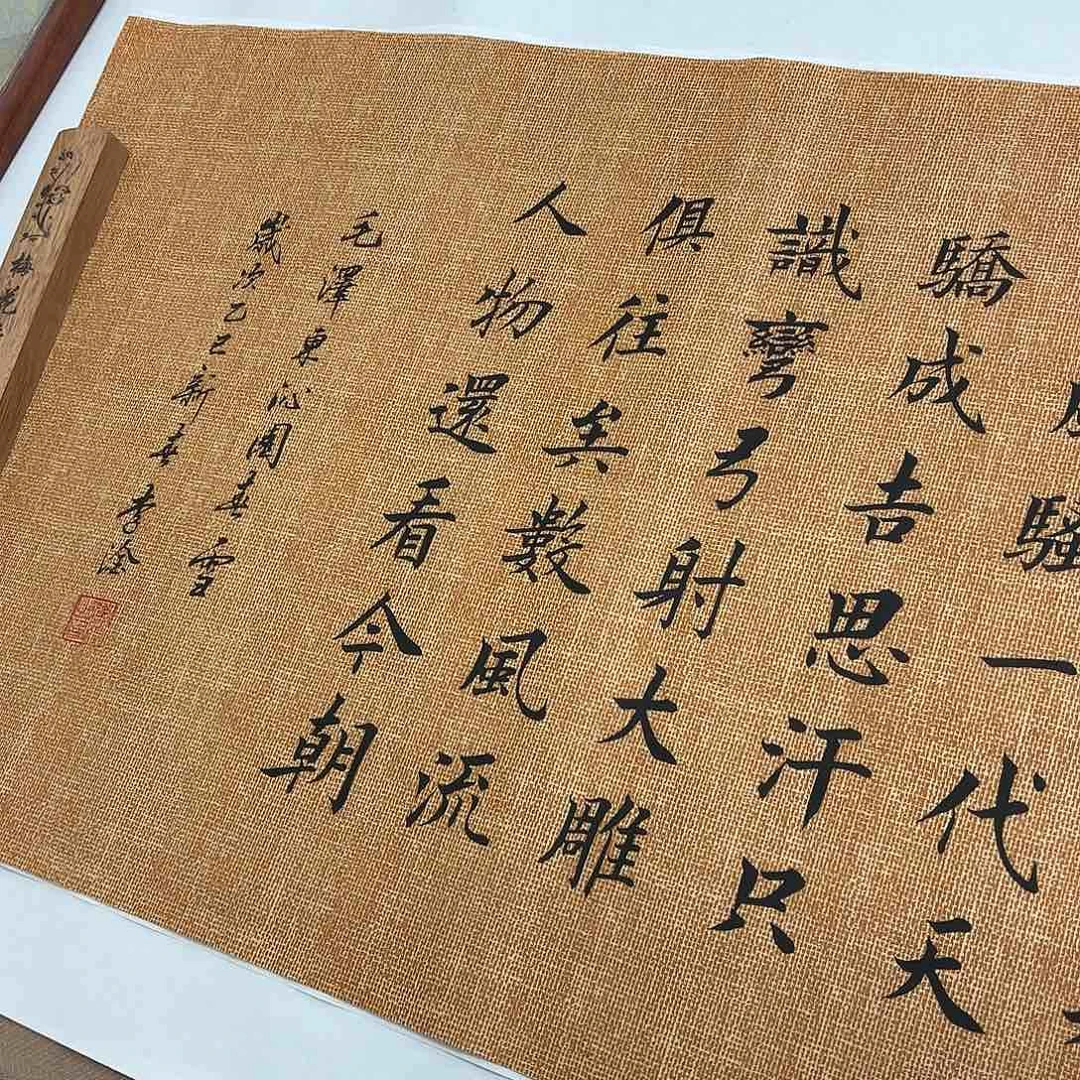 騷一代天
驕成吉思汗只
識彎弓射大雕
俱往矣數風流
人物還看今朝
毛澤東沁園春雪
歲次乙巳新春李
梅花